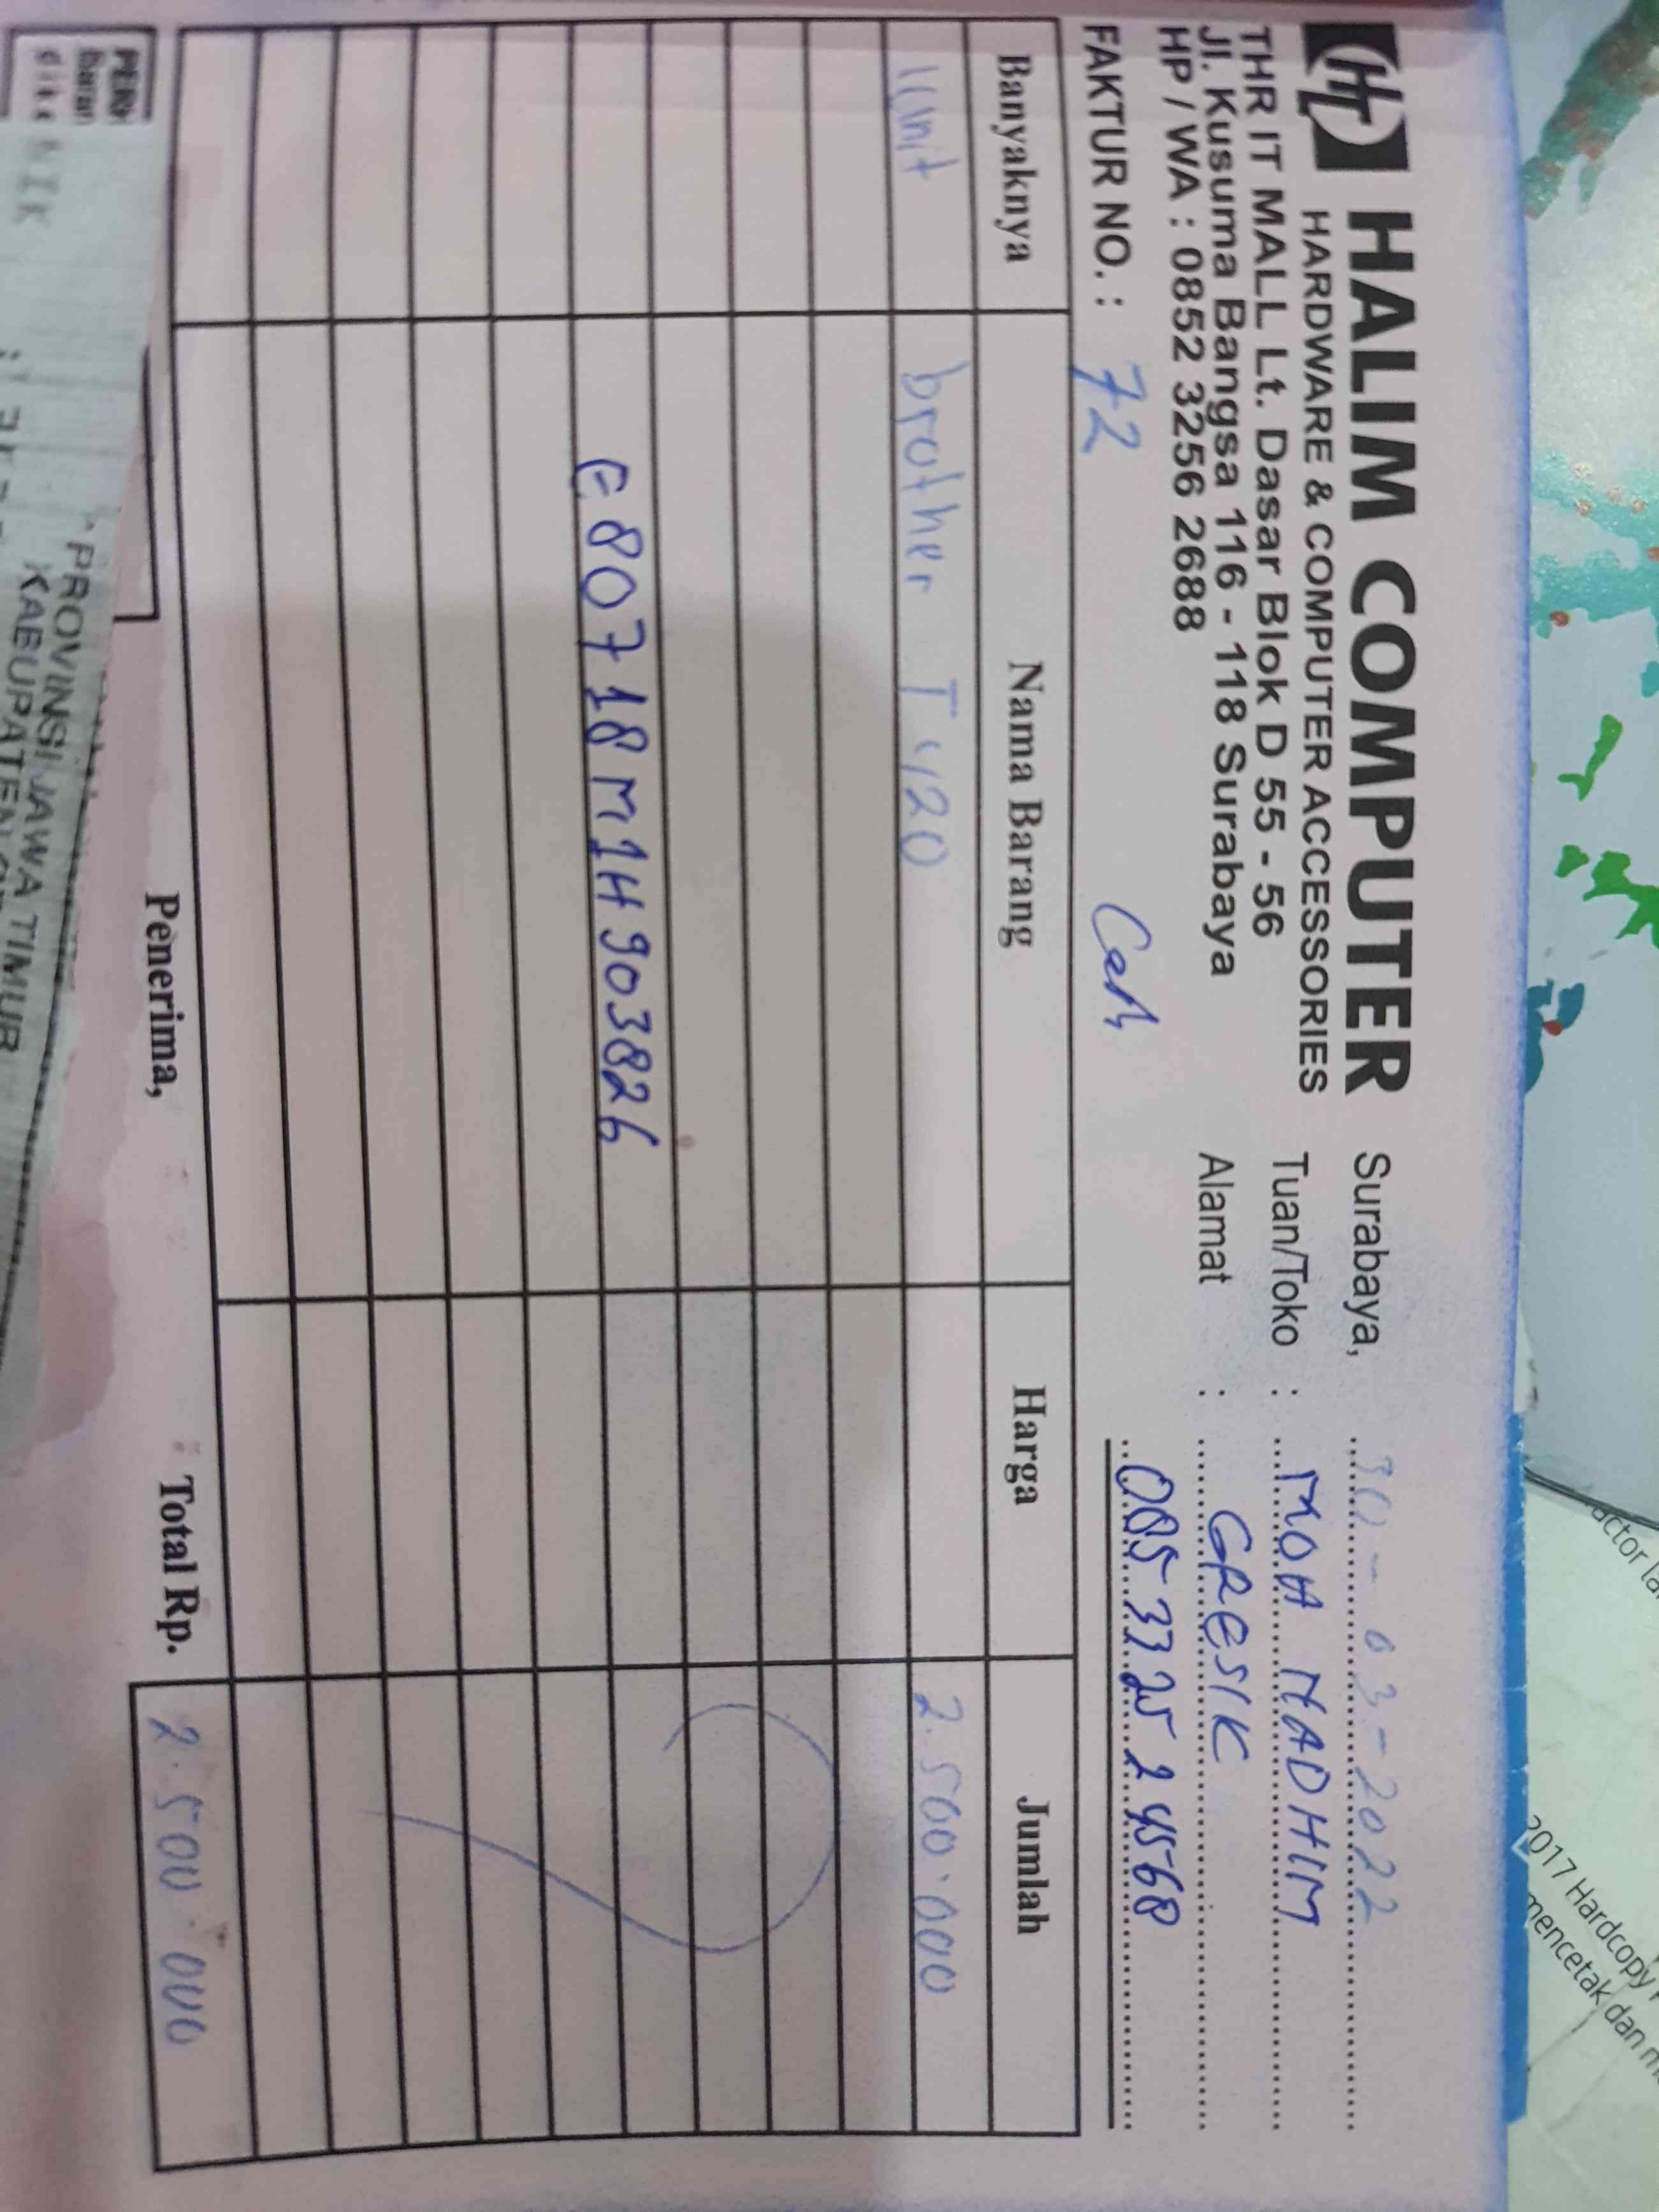 HT HALIM COMPUTER
HARDWARE & COMPUTER ACCESSORIES
THR IT MALL Lt. Dasar Blok D 55 - 56
Jl. Kusuma Bangsa 116 - 118 Surabaya
HP / WA : 0852 3256 2688
Surabaya, 30 - 03 - 2022
Tuan/Toko : MOH NADHIM
Alamat : GRESIK
FAKTUR NO. : 72 Cash
Banyaknya Nama Barang Harga Jumlah
1 Unit brother T420 2.500.000
E80718M1H903826
Penerima, Total Rp. 2.500.000
NIK
PROVINSI JAWA TIMUR
KABUPATEN
2017 Hardcopy
mencetak dan